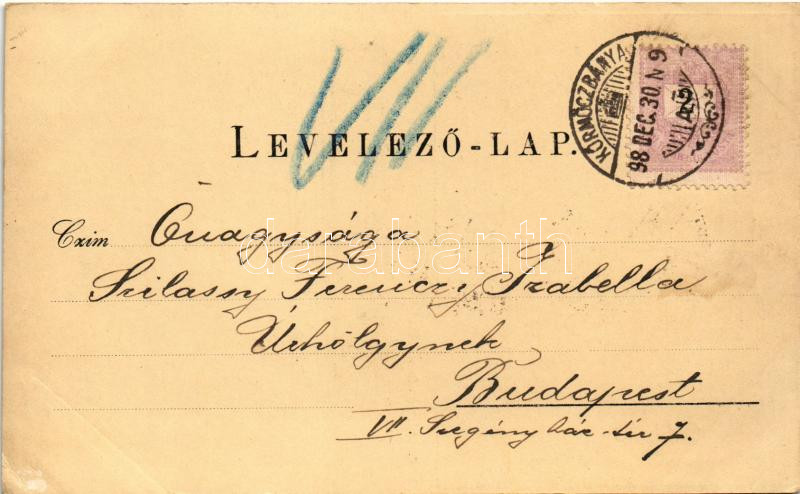 VII
KÖRMÖCZBÁNYA
98 DEC. 30. N 9
2
LEVELEZŐ-LAP.
Czim Őnagysága
Szilassy Ferenczy Izabella
Úrhölgynek
Budapest
VII. Szegényház-tér 7.
darabanth